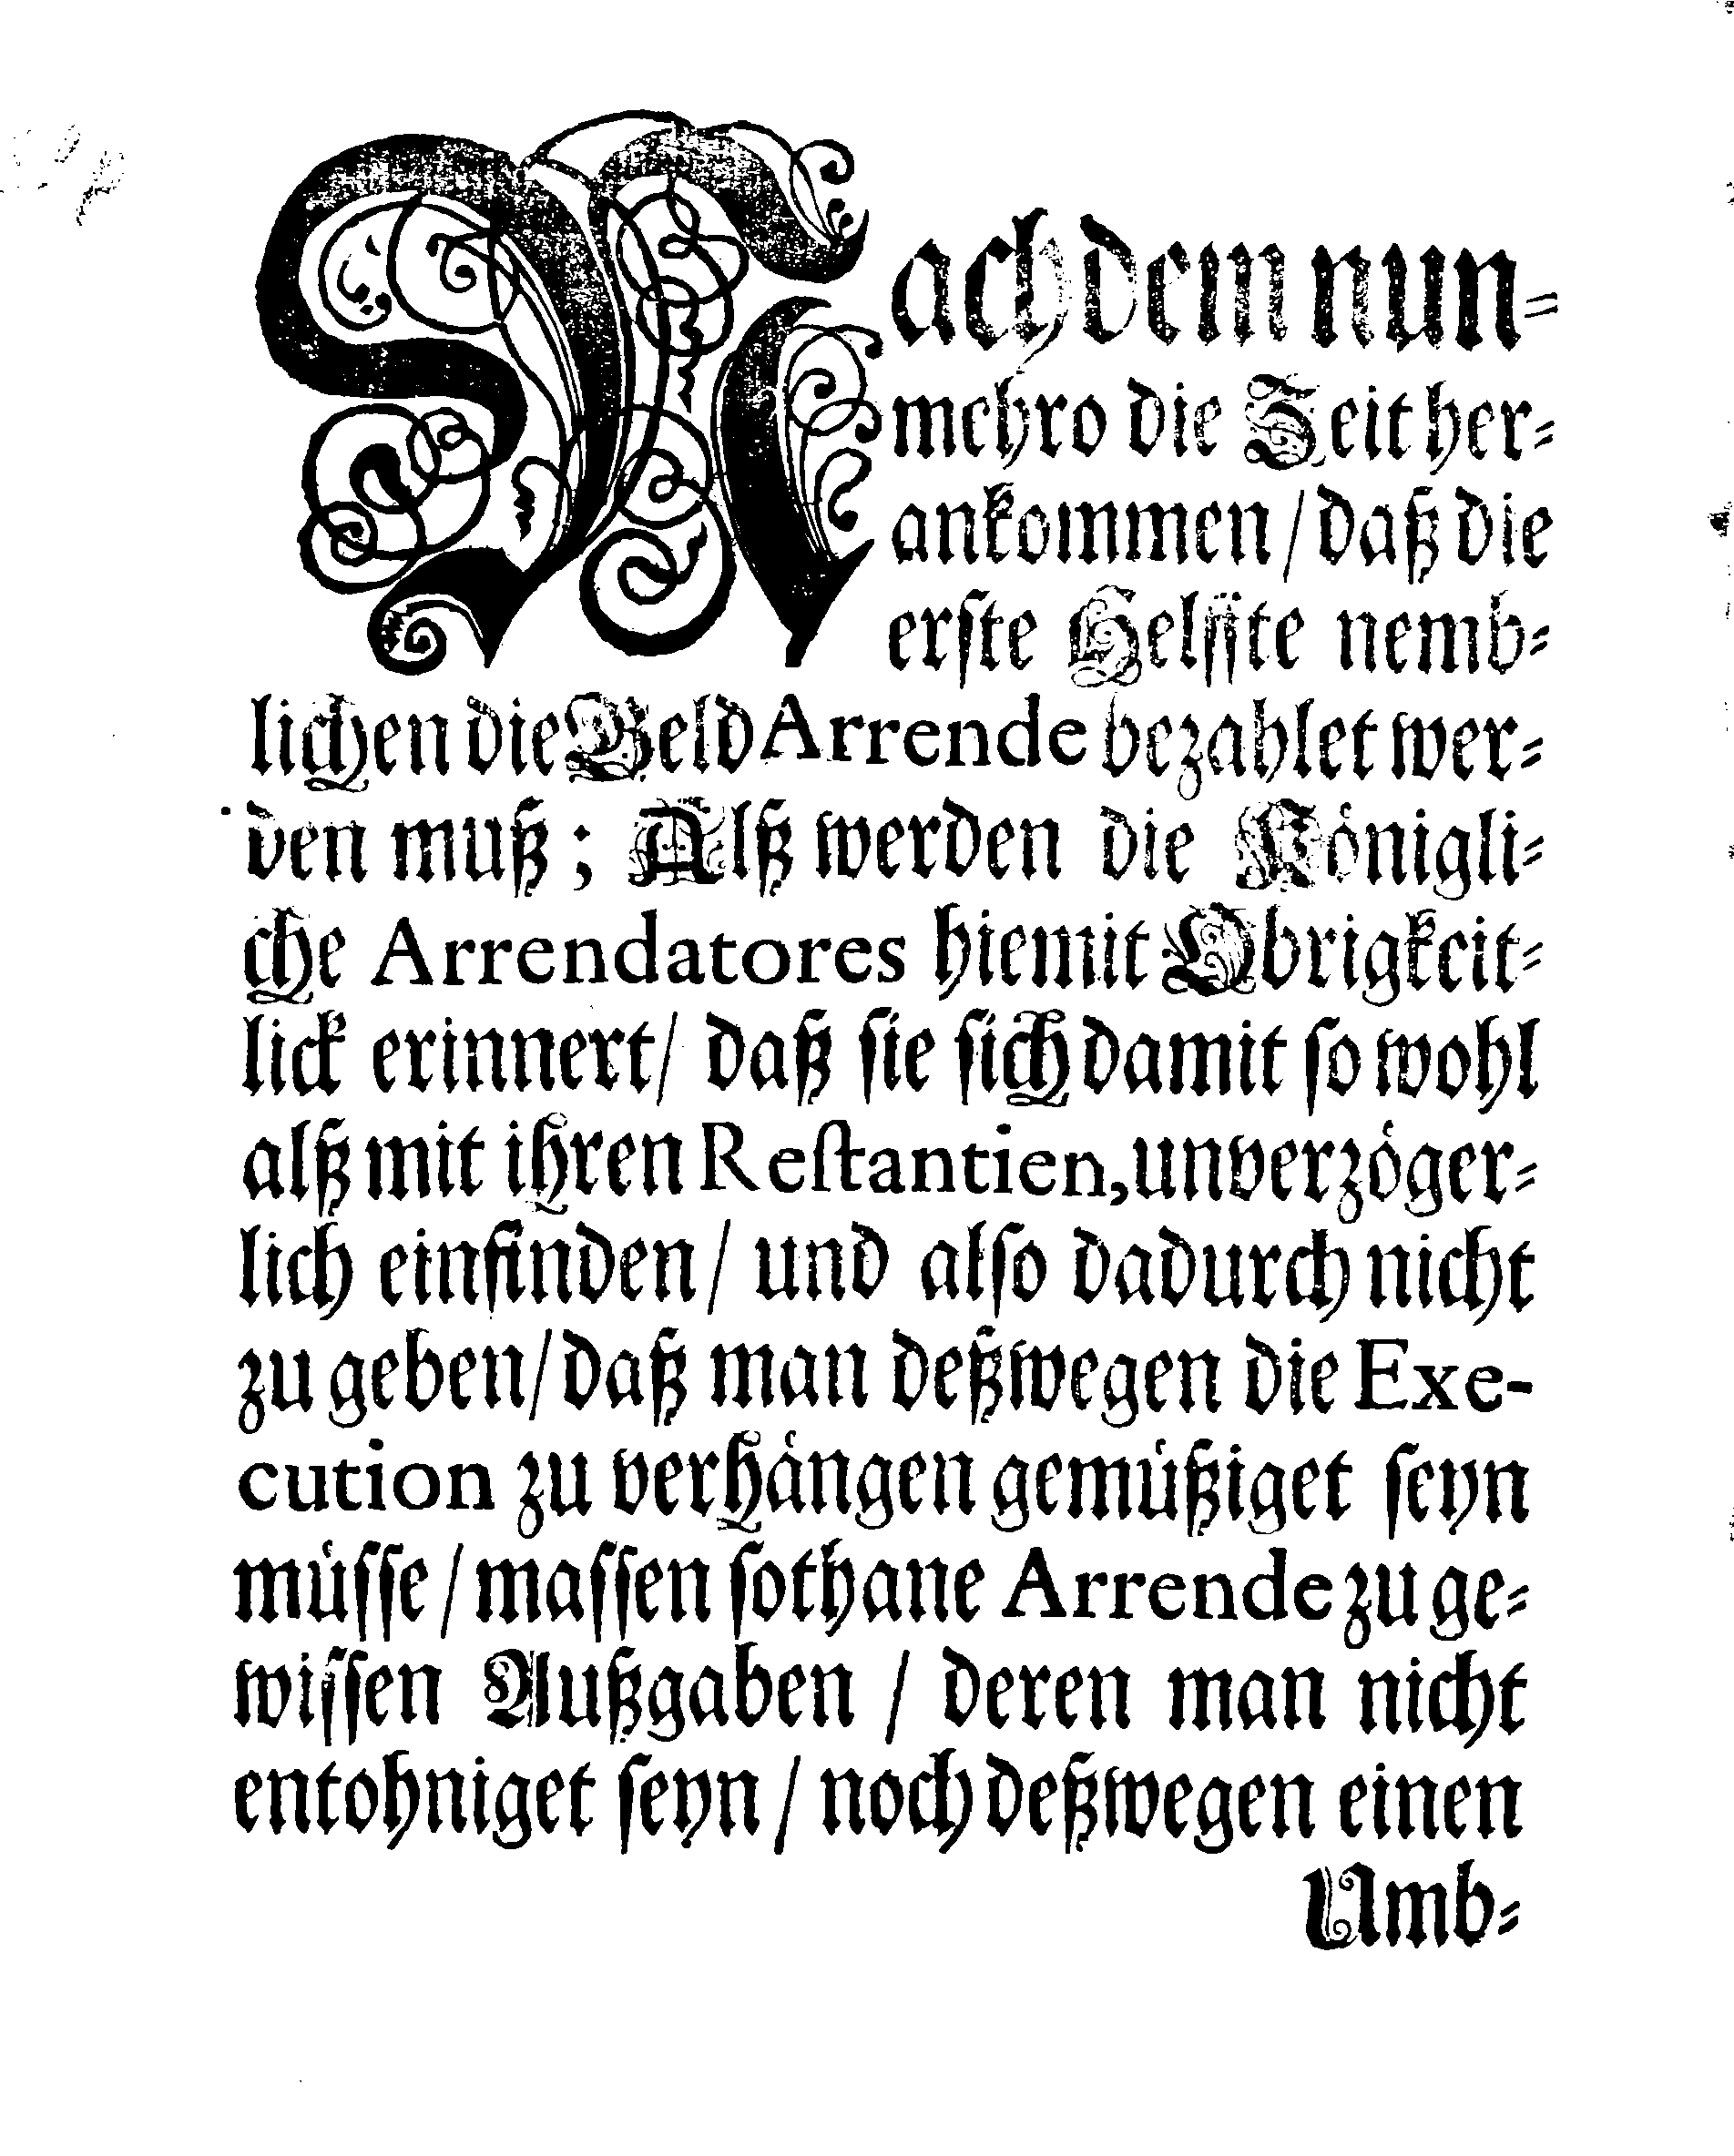 Nachdem nun-
mehro die Zeit her-
ankommen/ daß die
erste Helffte nemb-
lichen die Geld Arrende bezahlet wer-
den muß; Alß werden die Königli-
che Arrendatores hiemit Obrigkeit-
lick erinnert/ daß sie sich damit so wohl
alß mit ihren Restantien, unverzöger-
lich einfinden/ und also dadurch nicht
zu geben/ daß man deßwegen die Exe-
cution zu verhängen gemüßiget seyn
müsse/ massen sothane Arrende zu ge-
wissen Außgaben / deren man nicht
entohniget seyn/ noch deßwegen einen
Umb-